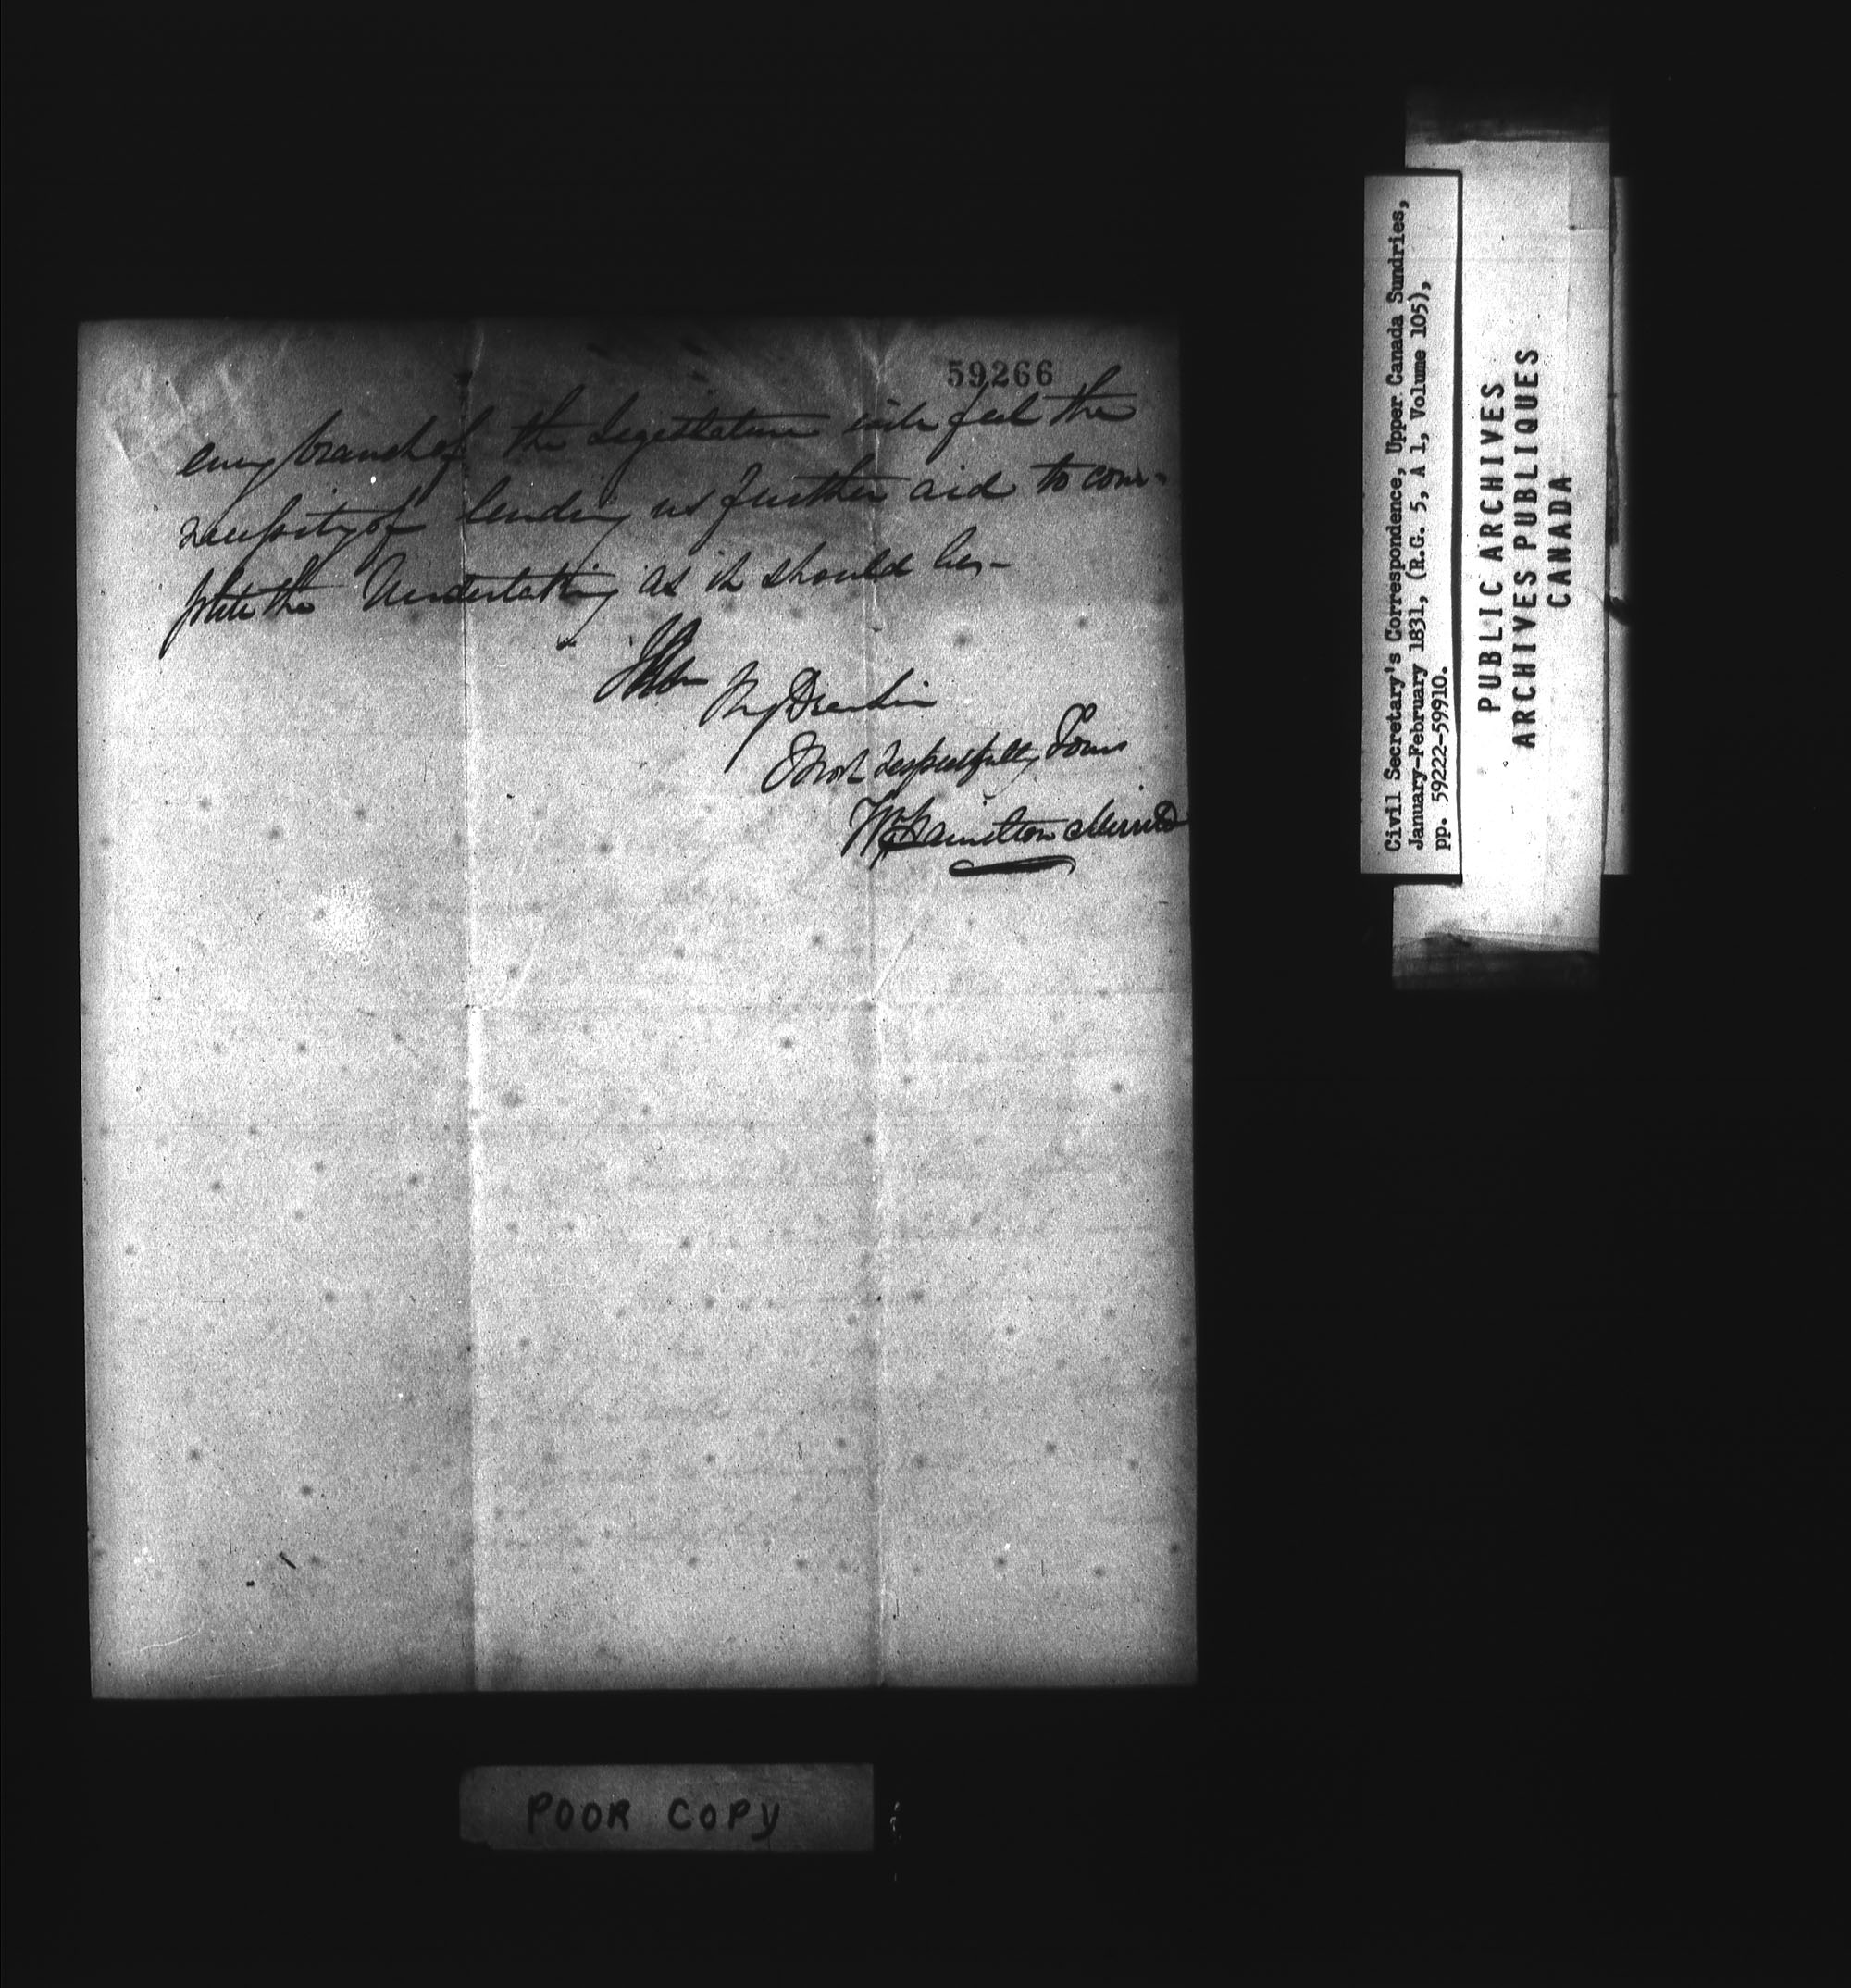 59266
every branch of the Legislature will feel the
necessity of lending us further aid to com-
plete the Undertaking as it should be,-
I am
My Dear Sir
Most respectfully Yours
Wm Hamilton Merritt
POOR COPY
Civil Secretary's Correspondence, Upper Canada Sundries,
January-February 1831, (R.G. 5, A 1, Volume 105),
pp. 59222-59910.
PUBLIC ARCHIVES
ARCHIVES PUBLIQUES
CANADA